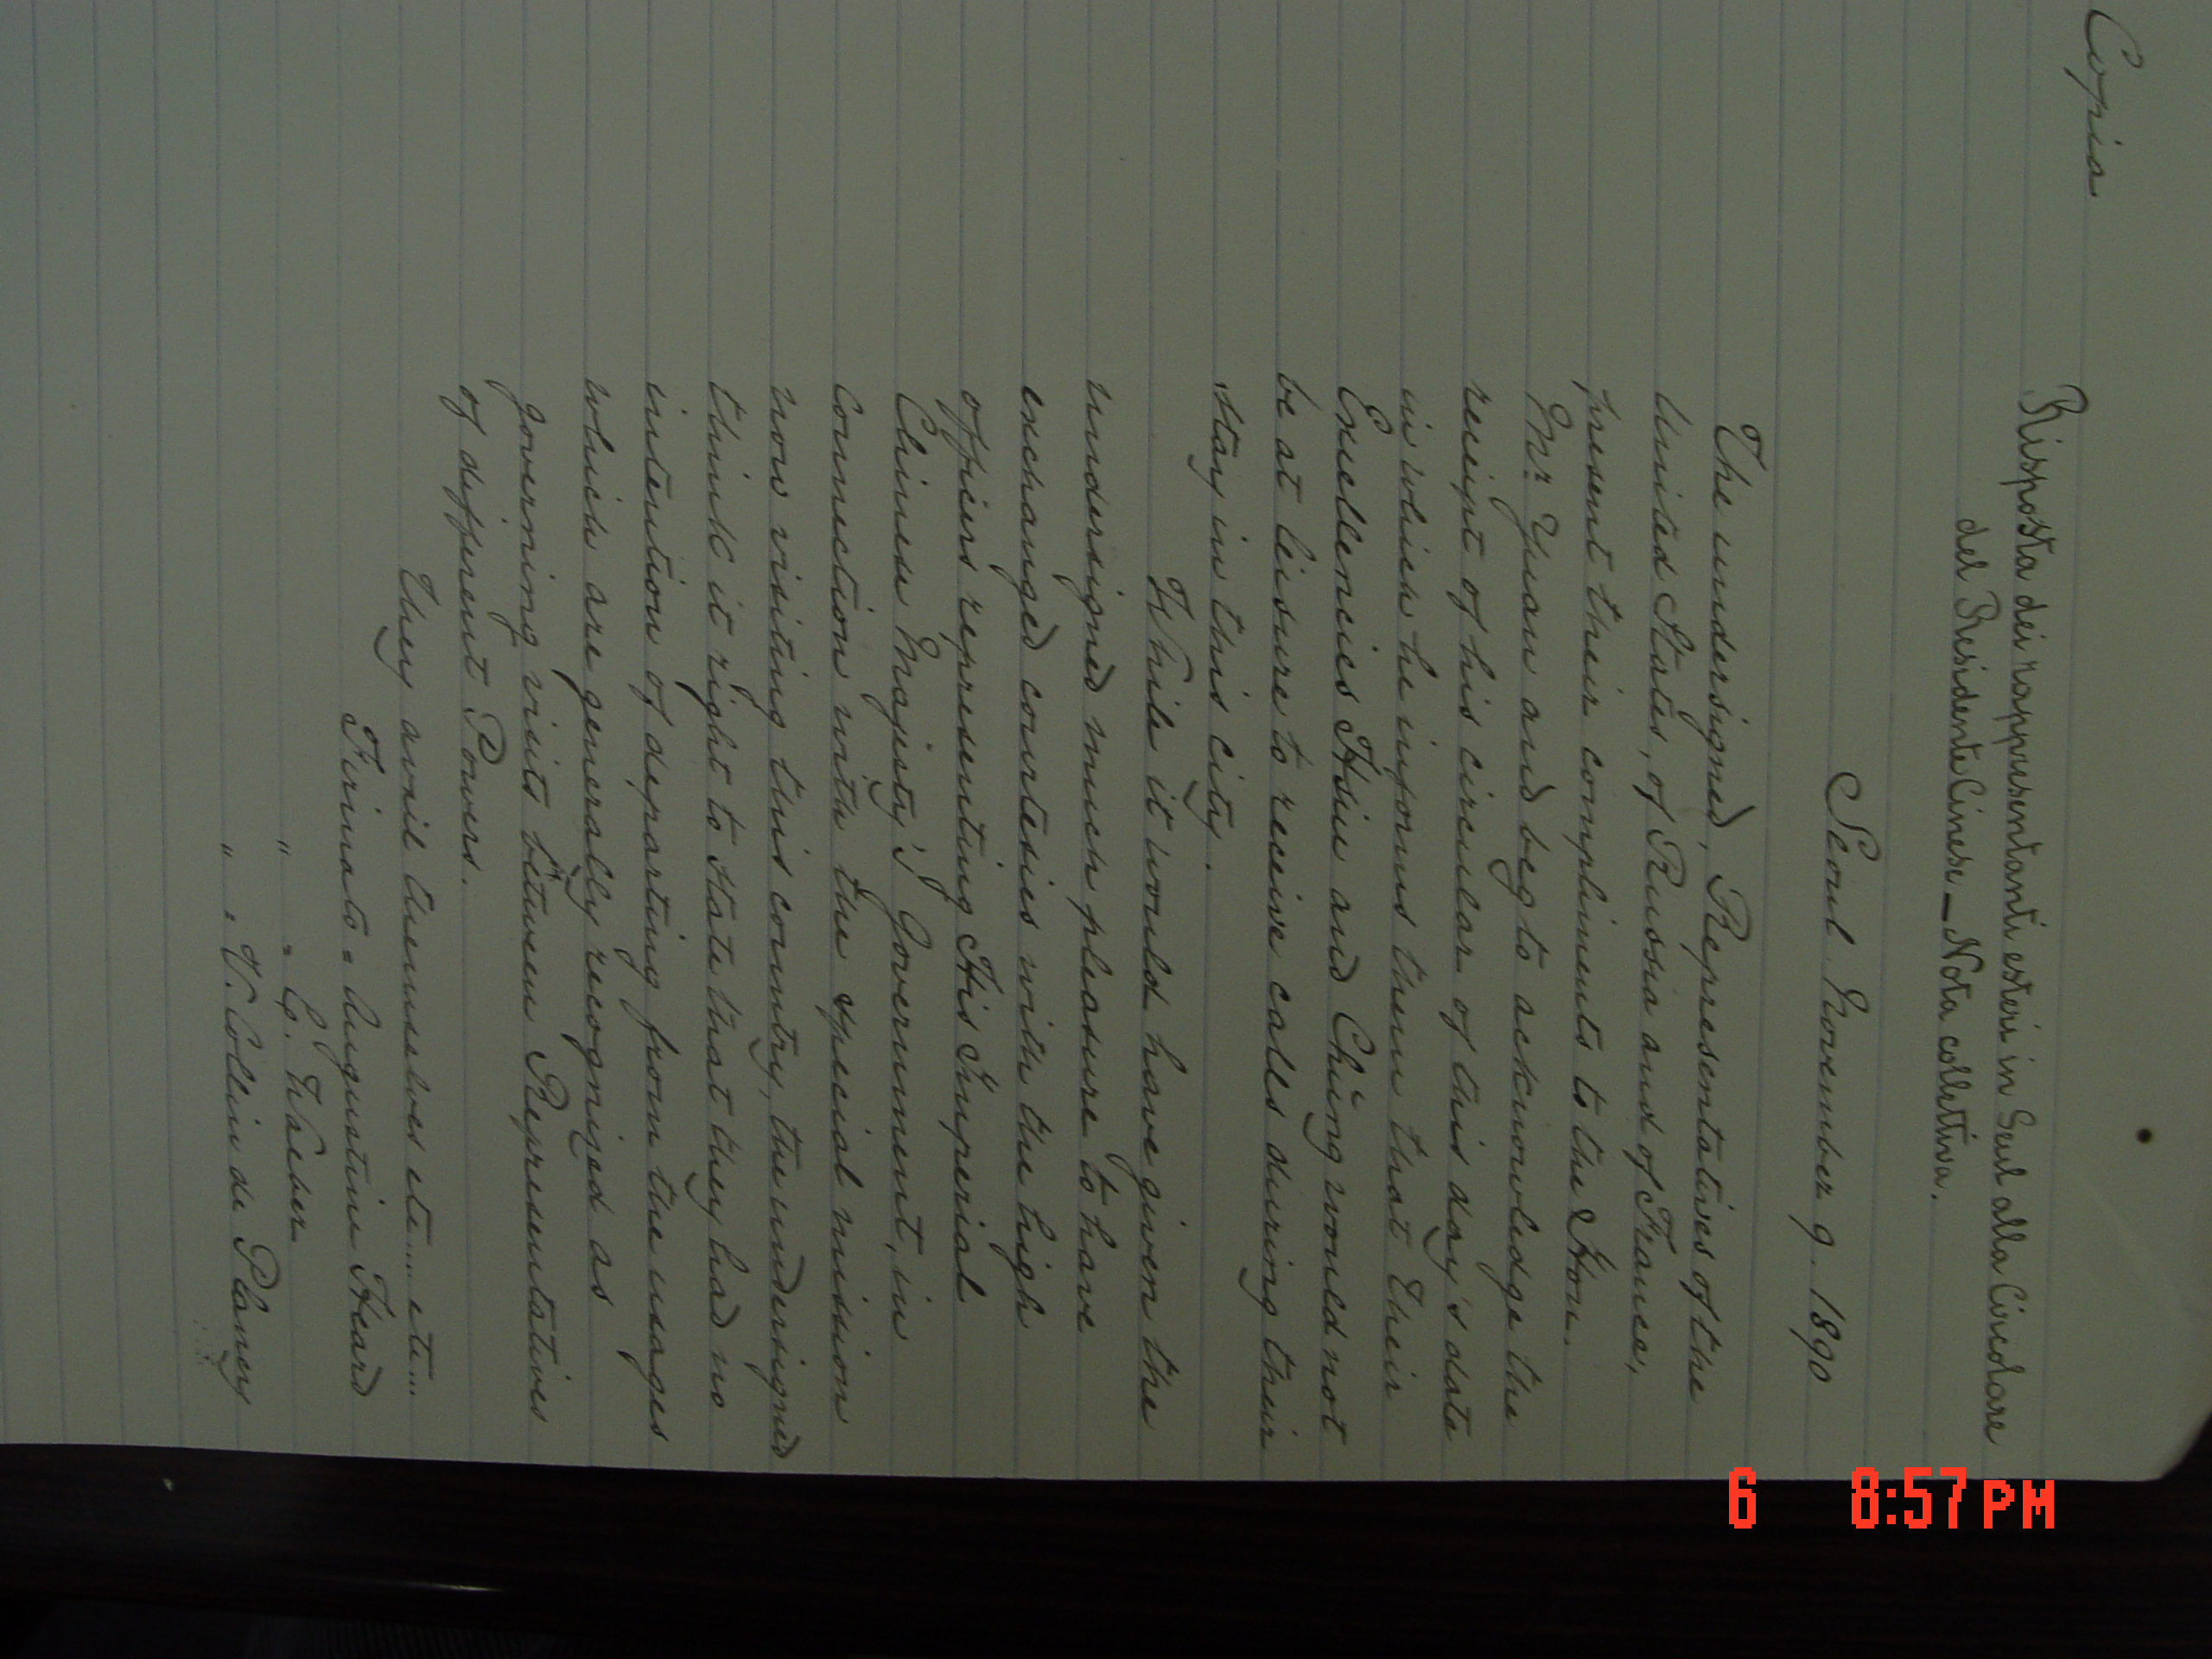 Copia
Risposta dei rappresentanti esteri in Seul alla Circolare
del Residente Cinese — Nota collettiva.
Seoul November 9. 1890
The undersigned, Representatives of the
United States, of Russia and of France,
present their compliments to the Hon.
Mr. Yuan and beg to acknowledge the
receipt of his circular of this day's date
in which he informs them that Their
Excellencies Hsü and Ch'ung would not
be at leisure to receive calls during their
stay in this city.
While it would have given the
undersigned much pleasure to have
exchanged courtesies with the high
officers representing His Imperial
Chinese Majesty's Government, in
connection with the special mission
now visiting this country, the undersigned
think it right to state that they had no
intention of departing from the usages
which are generally recognized as
governing visits between Representatives
of different Powers.
They avail themselves etc... etc...
Firmato = Augustine Heard
" = C. Waeber
" = V. Collin de Plancy
6 8:57 PM